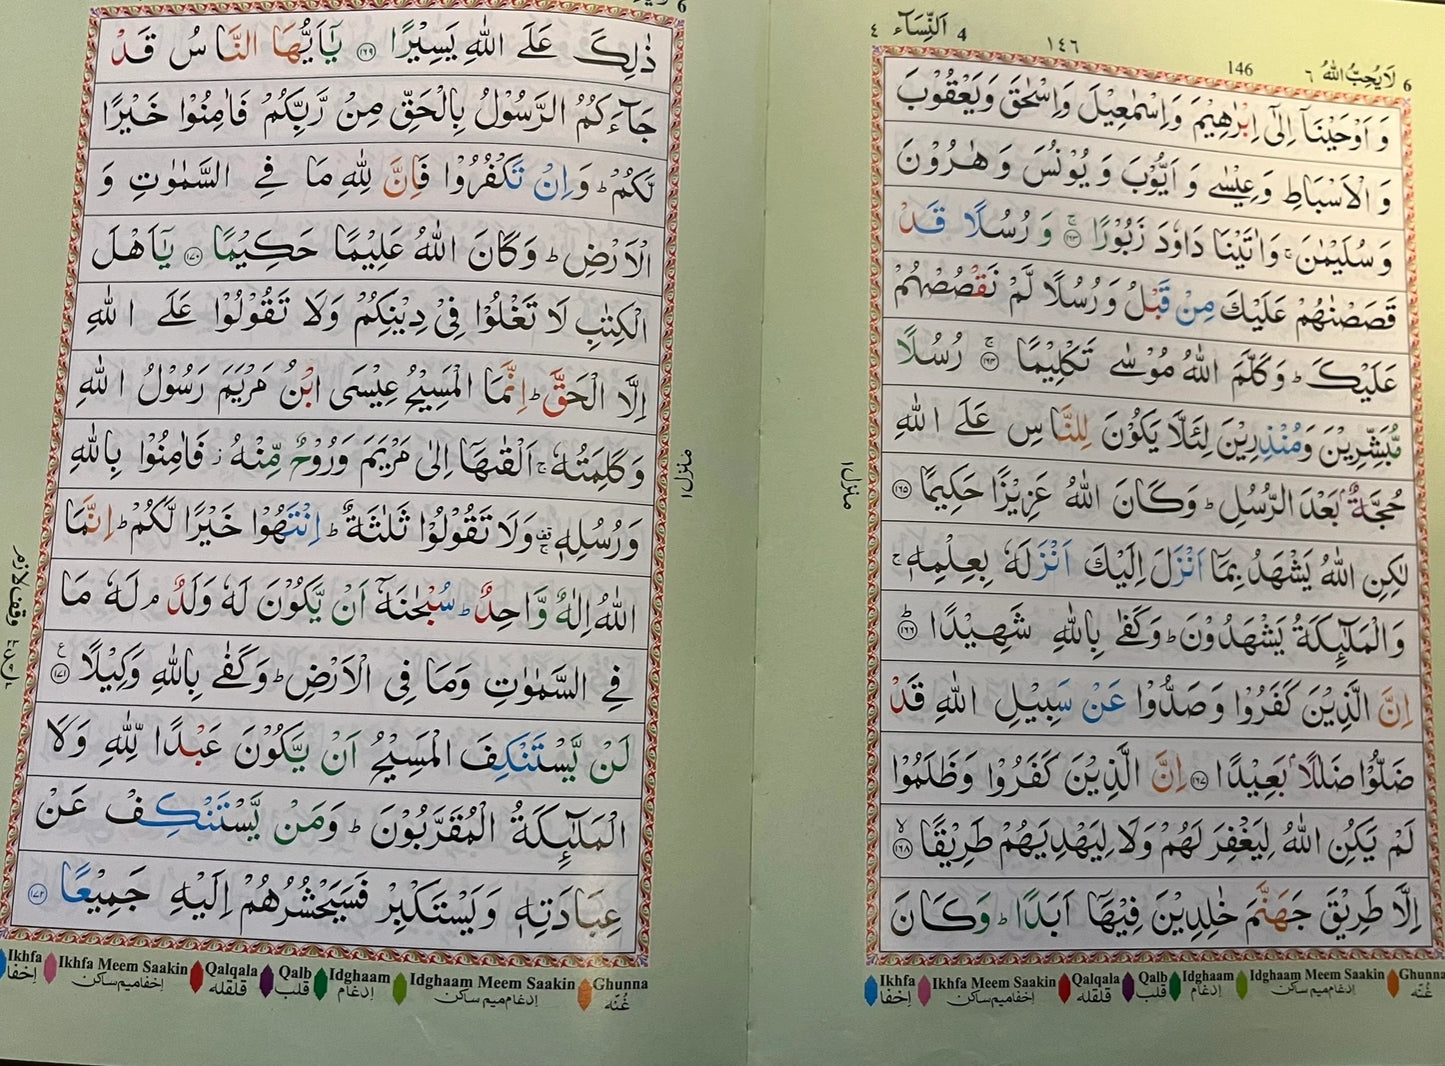 ٤ اَلنِّسَآء 4
١٤٦
146
لَايُحِبُّ اللهُ ٦ 6
وَ اَوْحَيْنَاۤ اِلٰۤى اِبْرٰهِيْمَ وَاِسْمٰعِيْلَ وَاِسْحٰقَ وَيَعْقُوْبَ
وَ الْاَسْبَاطِ وَعِيْسٰى وَ اَيُّوْبَ وَ يُوْنُسَ وَ هٰرُوْنَ
وَ سُلَيْمٰنَ ۚ وَاٰتَيْنَا دَاوٗدَ زَبُوْرًا ۚ ﴿١٦٣﴾ وَ رُسُلًا قَدْ
قَصَصْنٰهُمْ عَلَيْكَ مِنْ قَبْلُ وَ رُسُلًا لَّمْ نَقْصُصْهُمْ
عَلَيْكَ ؕ وَكَلَّمَ اللهُ مُوْسٰى تَكْلِيْمًا ۚ ﴿١٦٤﴾ رُسُلًا
مُّبَشِّرِيْنَ وَمُنْذِرِيْنَ لِئَلَّا يَكُوْنَ لِلنَّاسِ عَلَى اللهِ
حُجَّةٌۢ بَعْدَ الرُّسُلِ ؕ وَكَانَ اللهُ عَزِيْزًا حَكِيْمًا ﴿١٦٥﴾
لٰكِنِ اللهُ يَشْهَدُ بِمَاۤ اَنْزَلَ اِلَيْكَ اَنْزَلَهٗ بِعِلْمِهٖ ۚ
وَالْمَلٰٓئِكَةُ يَشْهَدُوْنَ ؕ وَكَفٰى بِاللهِ شَهِيْدًا ؕ ﴿١٦٦﴾
اِنَّ الَّذِيْنَ كَفَرُوْا وَ صَدُّوْا عَنْ سَبِيْلِ اللهِ قَدْ
ضَلُّوْا ضَلٰلًاۢ بَعِيْدًا ﴿١٦٧﴾ اِنَّ الَّذِيْنَ كَفَرُوْا وَظَلَمُوْا
لَمْ يَكُنِ اللهُ لِيَغْفِرَ لَهُمْ وَلَا لِيَهْدِيَهُمْ طَرِيْقًا ۙ ﴿١٦٨﴾
اِلَّا طَرِيْقَ جَهَنَّمَ خٰلِدِيْنَ فِيْهَاۤ اَبَدًا ؕ وَكَانَ
منزل ١
Ikhfa Ikhfa Meem Saakin Qalqala Qalb Idghaam Idghaam Meem Saakin Ghunna
اِخفا اِخفامیم ساکن قلقله قلب اِدغام اِدغام میم ساکن غُنّه
6
ذٰلِكَ عَلَى اللهِ يَسِيْرًا ﴿١٦٩﴾ يٰۤاَيُّهَا النَّاسُ قَدْ
جَآءَكُمُ الرَّسُوْلُ بِالْحَقِّ مِنْ رَّبِّكُمْ فَاٰمِنُوْا خَيْرًا
لَّكُمْ ؕ وَاِنْ تَكْفُرُوْا فَاِنَّ لِلّٰهِ مَا فِى السَّمٰوٰتِ وَ
الْاَرْضِ ؕ وَكَانَ اللهُ عَلِيْمًا حَكِيْمًا ﴿١٧٠﴾ يٰۤاَهْلَ
الْكِتٰبِ لَا تَغْلُوْا فِىْ دِيْنِكُمْ وَلَا تَقُوْلُوْا عَلَى اللهِ
اِلَّا الْحَقَّ ؕ اِنَّمَا الْمَسِيْحُ عِيْسَى ابْنُ مَرْيَمَ رَسُوْلُ اللهِ
وَكَلِمَتُهٗ ۚ اَلْقٰىهَاۤ اِلٰى مَرْيَمَ وَرُوْحٌ مِّنْهُ ز فَاٰمِنُوْا بِاللهِ
وَرُسُلِهٖ ۚ وَلَا تَقُوْلُوْا ثَلٰثَةٌ ؕ اِنْتَهُوْا خَيْرًا لَّكُمْ ؕ اِنَّمَا
اللهُ اِلٰهٌ وَّاحِدٌ ؕ سُبْحٰنَهٗۤ اَنْ يَّكُوْنَ لَهٗ وَلَدٌ ۘ لَهٗ مَا
فِى السَّمٰوٰتِ وَمَا فِى الْاَرْضِ ؕ وَكَفٰى بِاللهِ وَكِيْلًا ﴿١٧١﴾ ع
لَنْ يَّسْتَنْكِفَ الْمَسِيْحُ اَنْ يَّكُوْنَ عَبْدًا لِّلّٰهِ وَلَا
الْمَلٰٓئِكَةُ الْمُقَرَّبُوْنَ ؕ وَمَنْ يَّسْتَنْكِفْ عَنْ
عِبَادَتِهٖ وَيَسْتَكْبِرْ فَسَيَحْشُرُهُمْ اِلَيْهِ جَمِيْعًا ﴿١٧٢﴾
منزل ١
وقف لازم
Ikhfa Ikhfa Meem Saakin Qalqala Qalb Idghaam Idghaam Meem Saakin Ghunna
اِخفا اِخفامیم ساکن قلقله قلب اِدغام اِدغام میم ساکن غُنّه